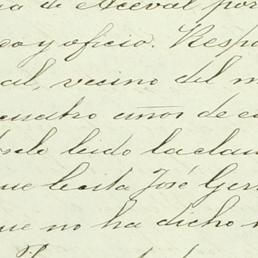 ia de Aceval por
do y oficio. Respo
al, vecino del m
cuatro años de e
sele leido la clau
que la cita José Ger
que no ha dicho